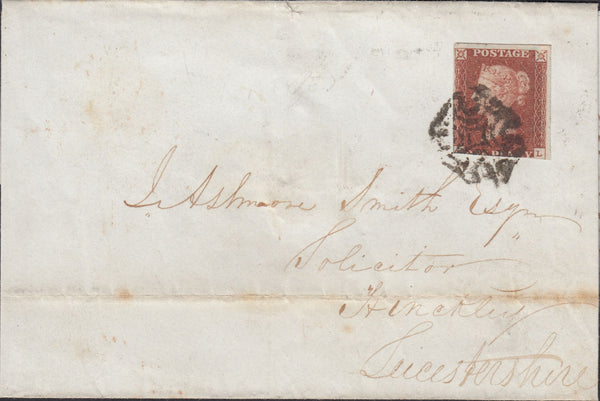 POSTAGE
L
J. Ashmore Smith Esqre
Solicitor
Hinckley
Leicestershire